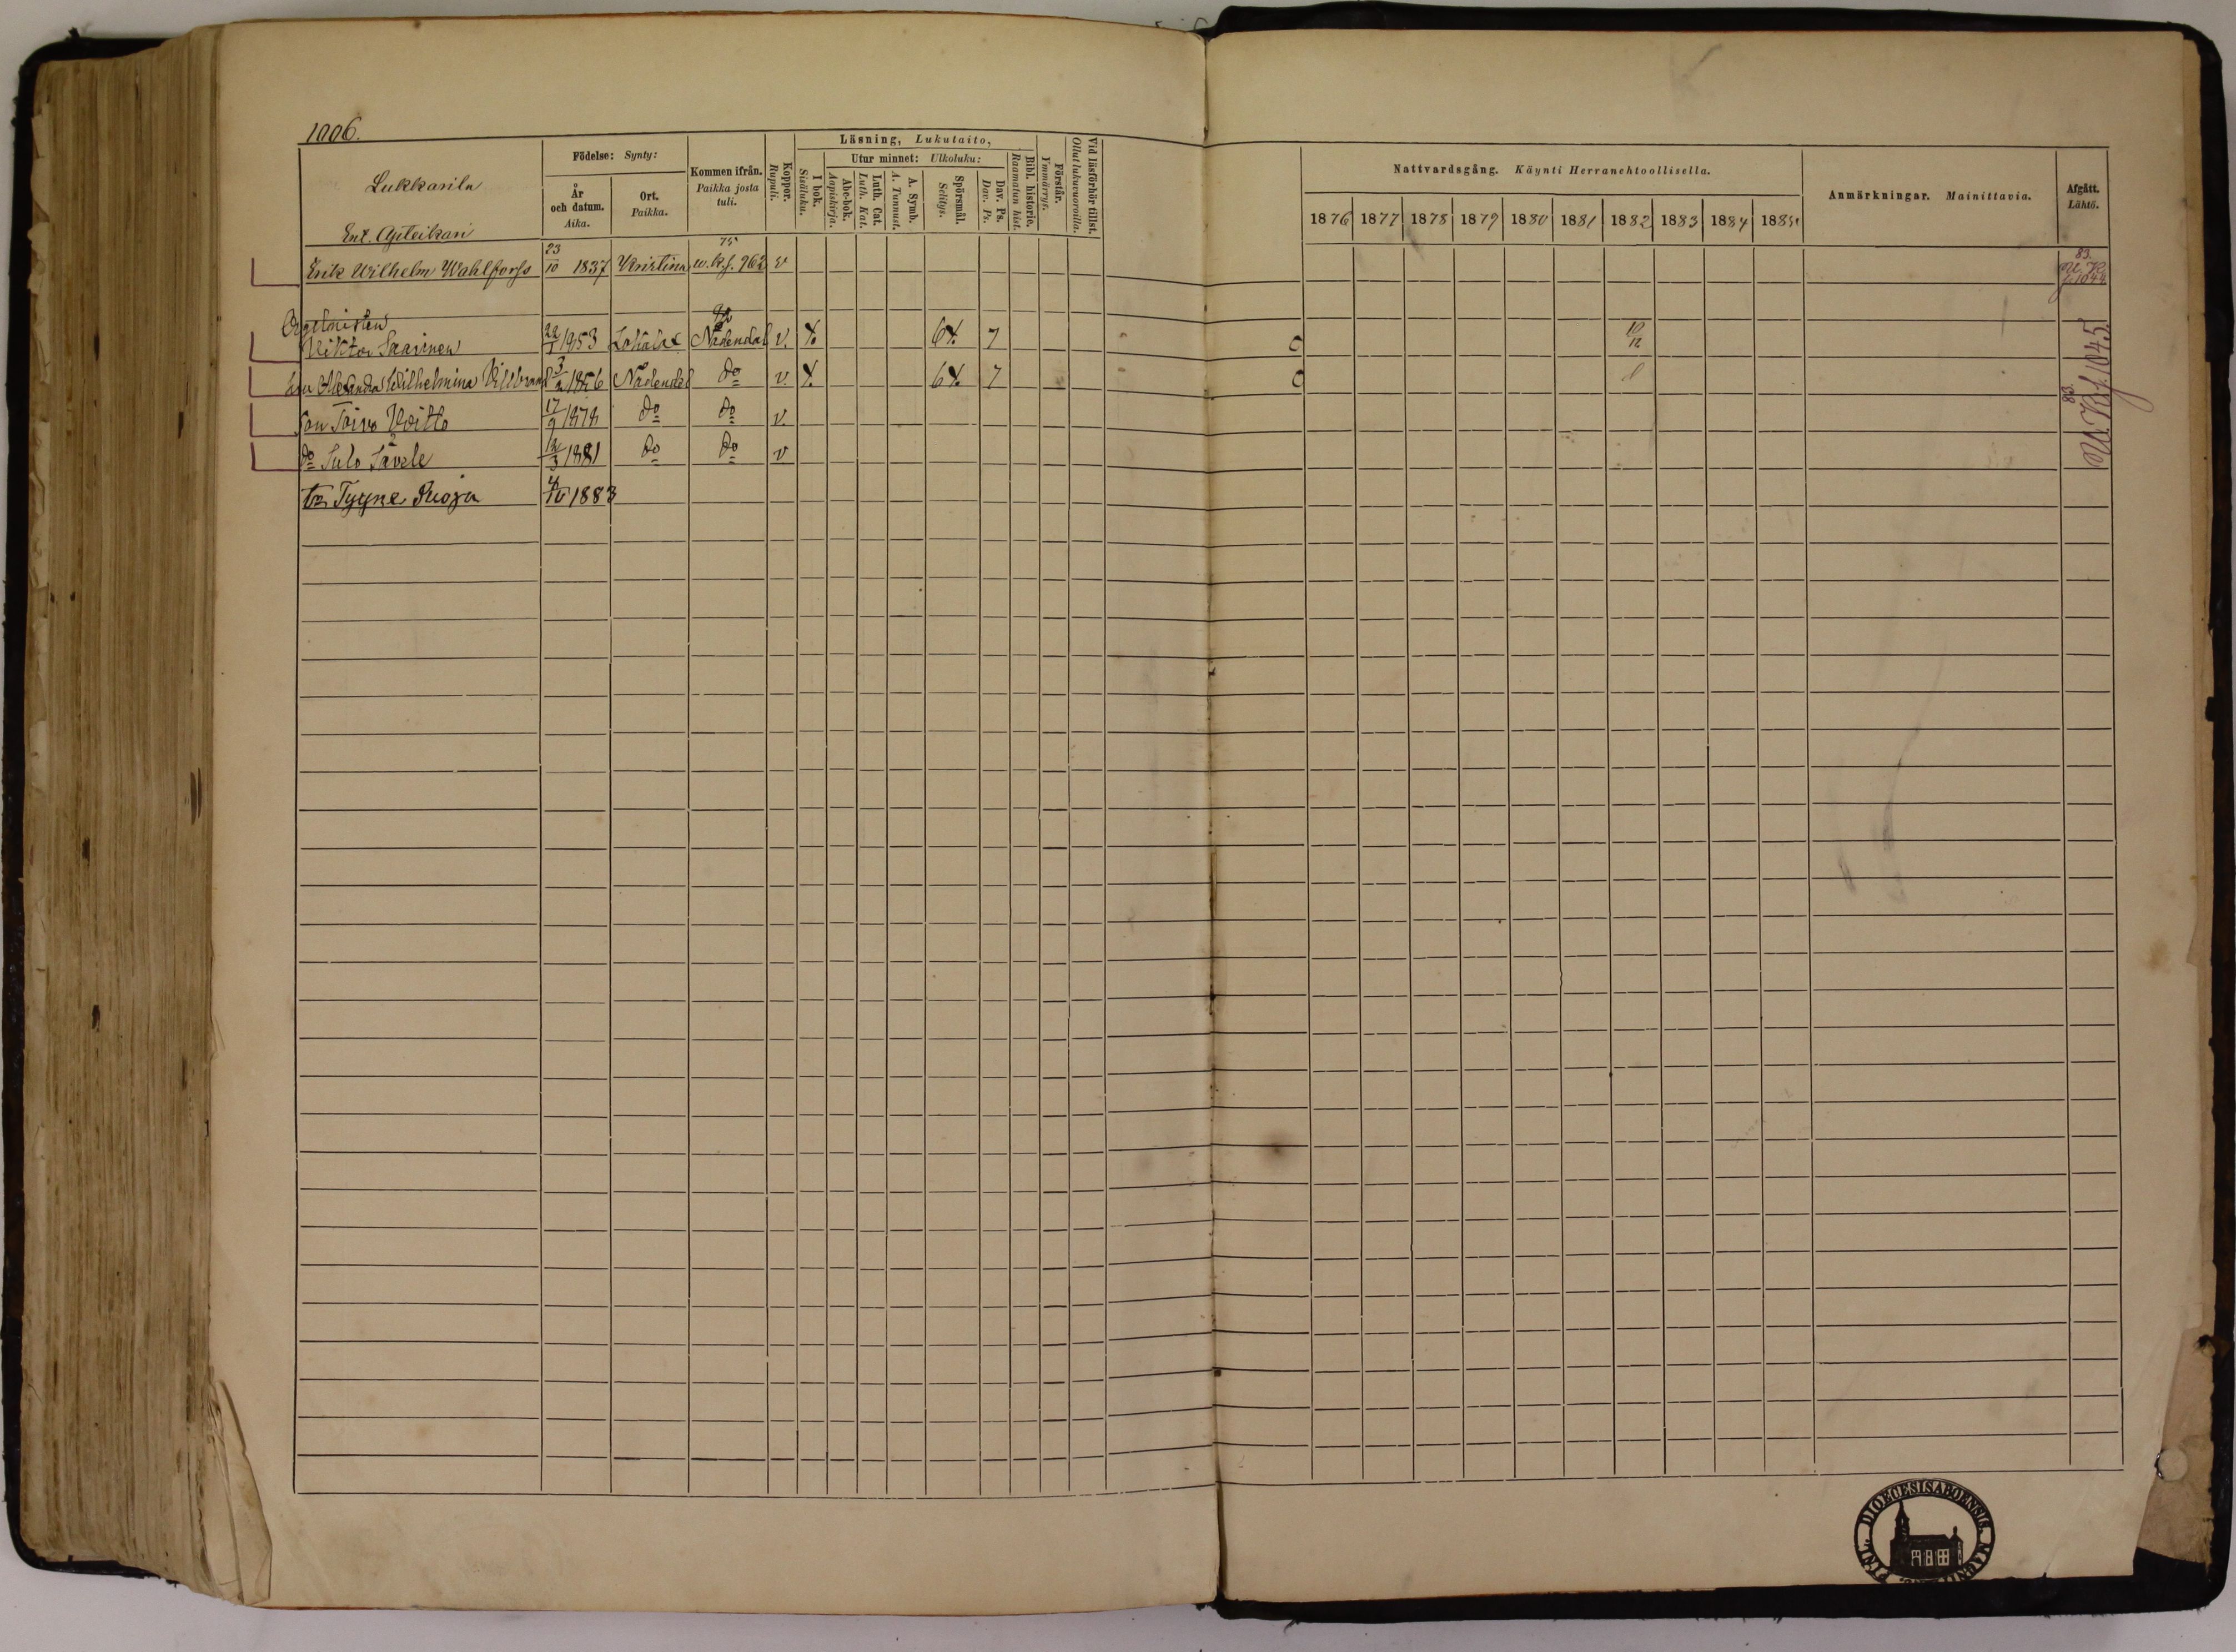 1006.
Lukkarila
Ent. Apteikari
Födelse: Synty:
År och datum. Aika.
Ort. Paikka.
Kommen ifrån. Paikka josta tuli.
Koppor. Rupuli.
Läsning, Lukutaito,
I bok. Sisäluku.
Utur minnet: Ulkoluku:
Abc-bok. Aapiskirja.
Luth. Cat. Luth. Kat.
A. Symb. A. Tunnust.
Spörsmål. Selitys.
Dav. Ps. Dav. Ps.
Bibl. historie. Raamatun hist.
Förstår. Ymmärrys.
Vid läsförhör tillst. Ollut lukuvuoroilla.
Nattvardsgång. Käynti Herranehtoollisella.
1876 1877 1878 1879 1880 1881 1882 1883 1884 1885
Anmärkningar. Mainittavia.
Afgått. Lähtö.
Erik Wilhelm Wahlforss 23/10 1837 Kristina 75 w.k.s. 962 v 83. U. K. s. 1044
Orgelnisten
Viktor Saarinen 22/1 1853 Lokalax 82 Nådendal v. 7 10/12
Hu Alexandra Wilhelmina 3/2 1856 Nådendal do v. 7
Son Toivo Voitto 17/9 1878 do do v. 83. U. K. s. 1045.
do Sulo Sävele 12/3 1881 do do v
tr. Tyyne Ruoja 4/IV 1883
DIOECESIS ABOENSIS